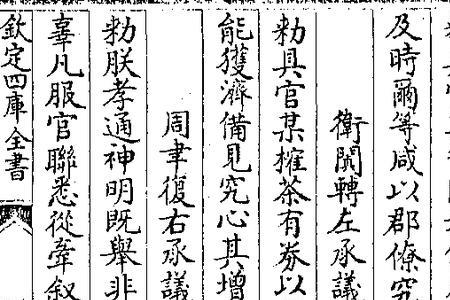 及時爾等咸以郡僚究
衛闐轉左承議
勅具官某搉茶有券以
能獲濟備見究心其增
周聿復右承議
勅朕孝通神明既舉非
辜凡服官聯悉從牽叙
欽定四庫全書